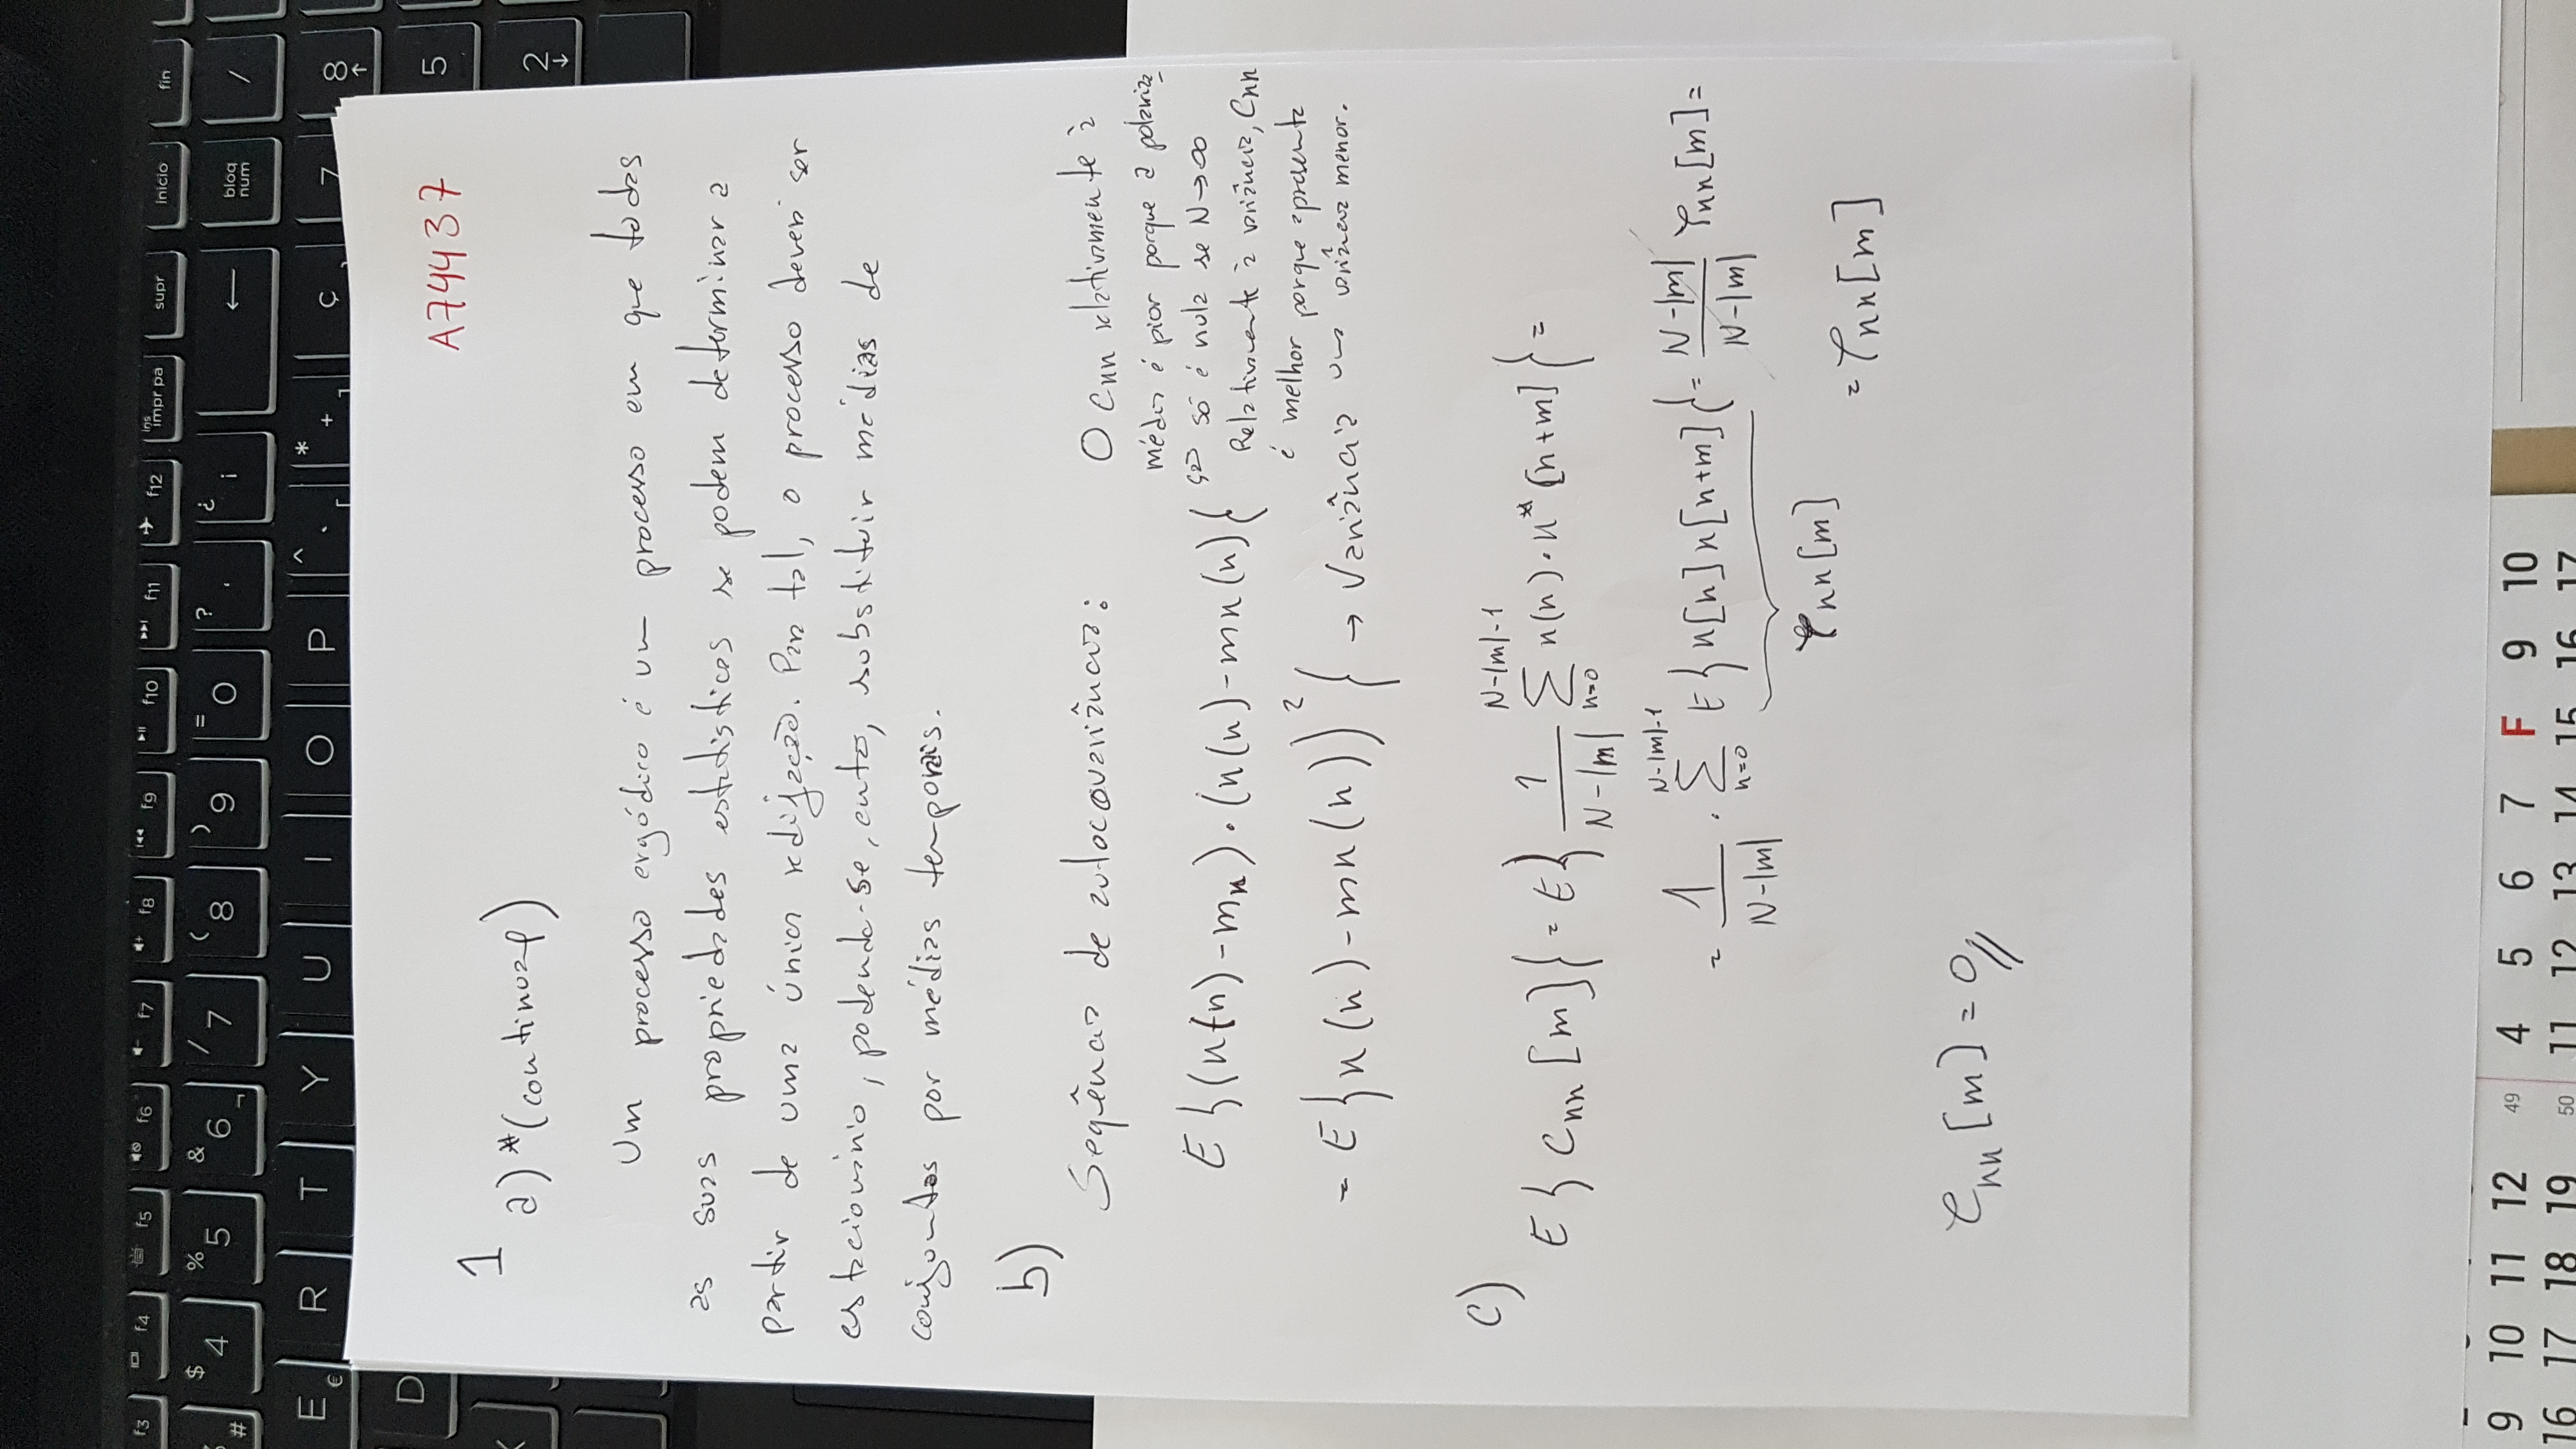 f3 f4 f5 f6 f7 f8 f9 f10 f11 f12 ins impr pa supr inicio fin
# $ 4 % 5 & 6 ¬ / 7 ( 8 ) 9 = 0 ? ' ¿ ¡ ← bloq num /
E € R T Y U I O P ^ [ * + ] ç 7 8 ↑
D 5
2 ↓
A74437
1
a) *(continuaç)
Um processo ergódico é um processo em que todas
as suas propriedades estatísticas se podem determinar a
partir de uma única realização. Para tal, o processo deverá ser
estacionário, podendo-se, então, substituir médias de
conjuntos por médias temporais.
b)
Seqência de autocovariância:
E{(x(n)-mx).(x(n)-mx(n)}
= E{x(n)-mx(n))²} → Variância
O Cxx relativamente à
média é pior porque a polariza
ção só é nula se N→∞
Relativamente à variância, Cxx
é melhor porque apresenta
uma variância menor.
c)
E{Cxx[m]} = E{1/(N-|m|) Σ_{n=0}^{N-|m|-1} x(n).x*[n+m]} =
= 1/(N-|m|) . Σ_{n=0}^{N-|m|-1} E{x[n]x[n+m]} = (N-|m|)/(N-|m|) φxx[m] =
φxx[m]
= φxx[m]
φxx[m] = 0//
9 10 11 12 49 4 5 6 7 F 9 10
16 17 18 19 50 11 12 13 14 15 16 17